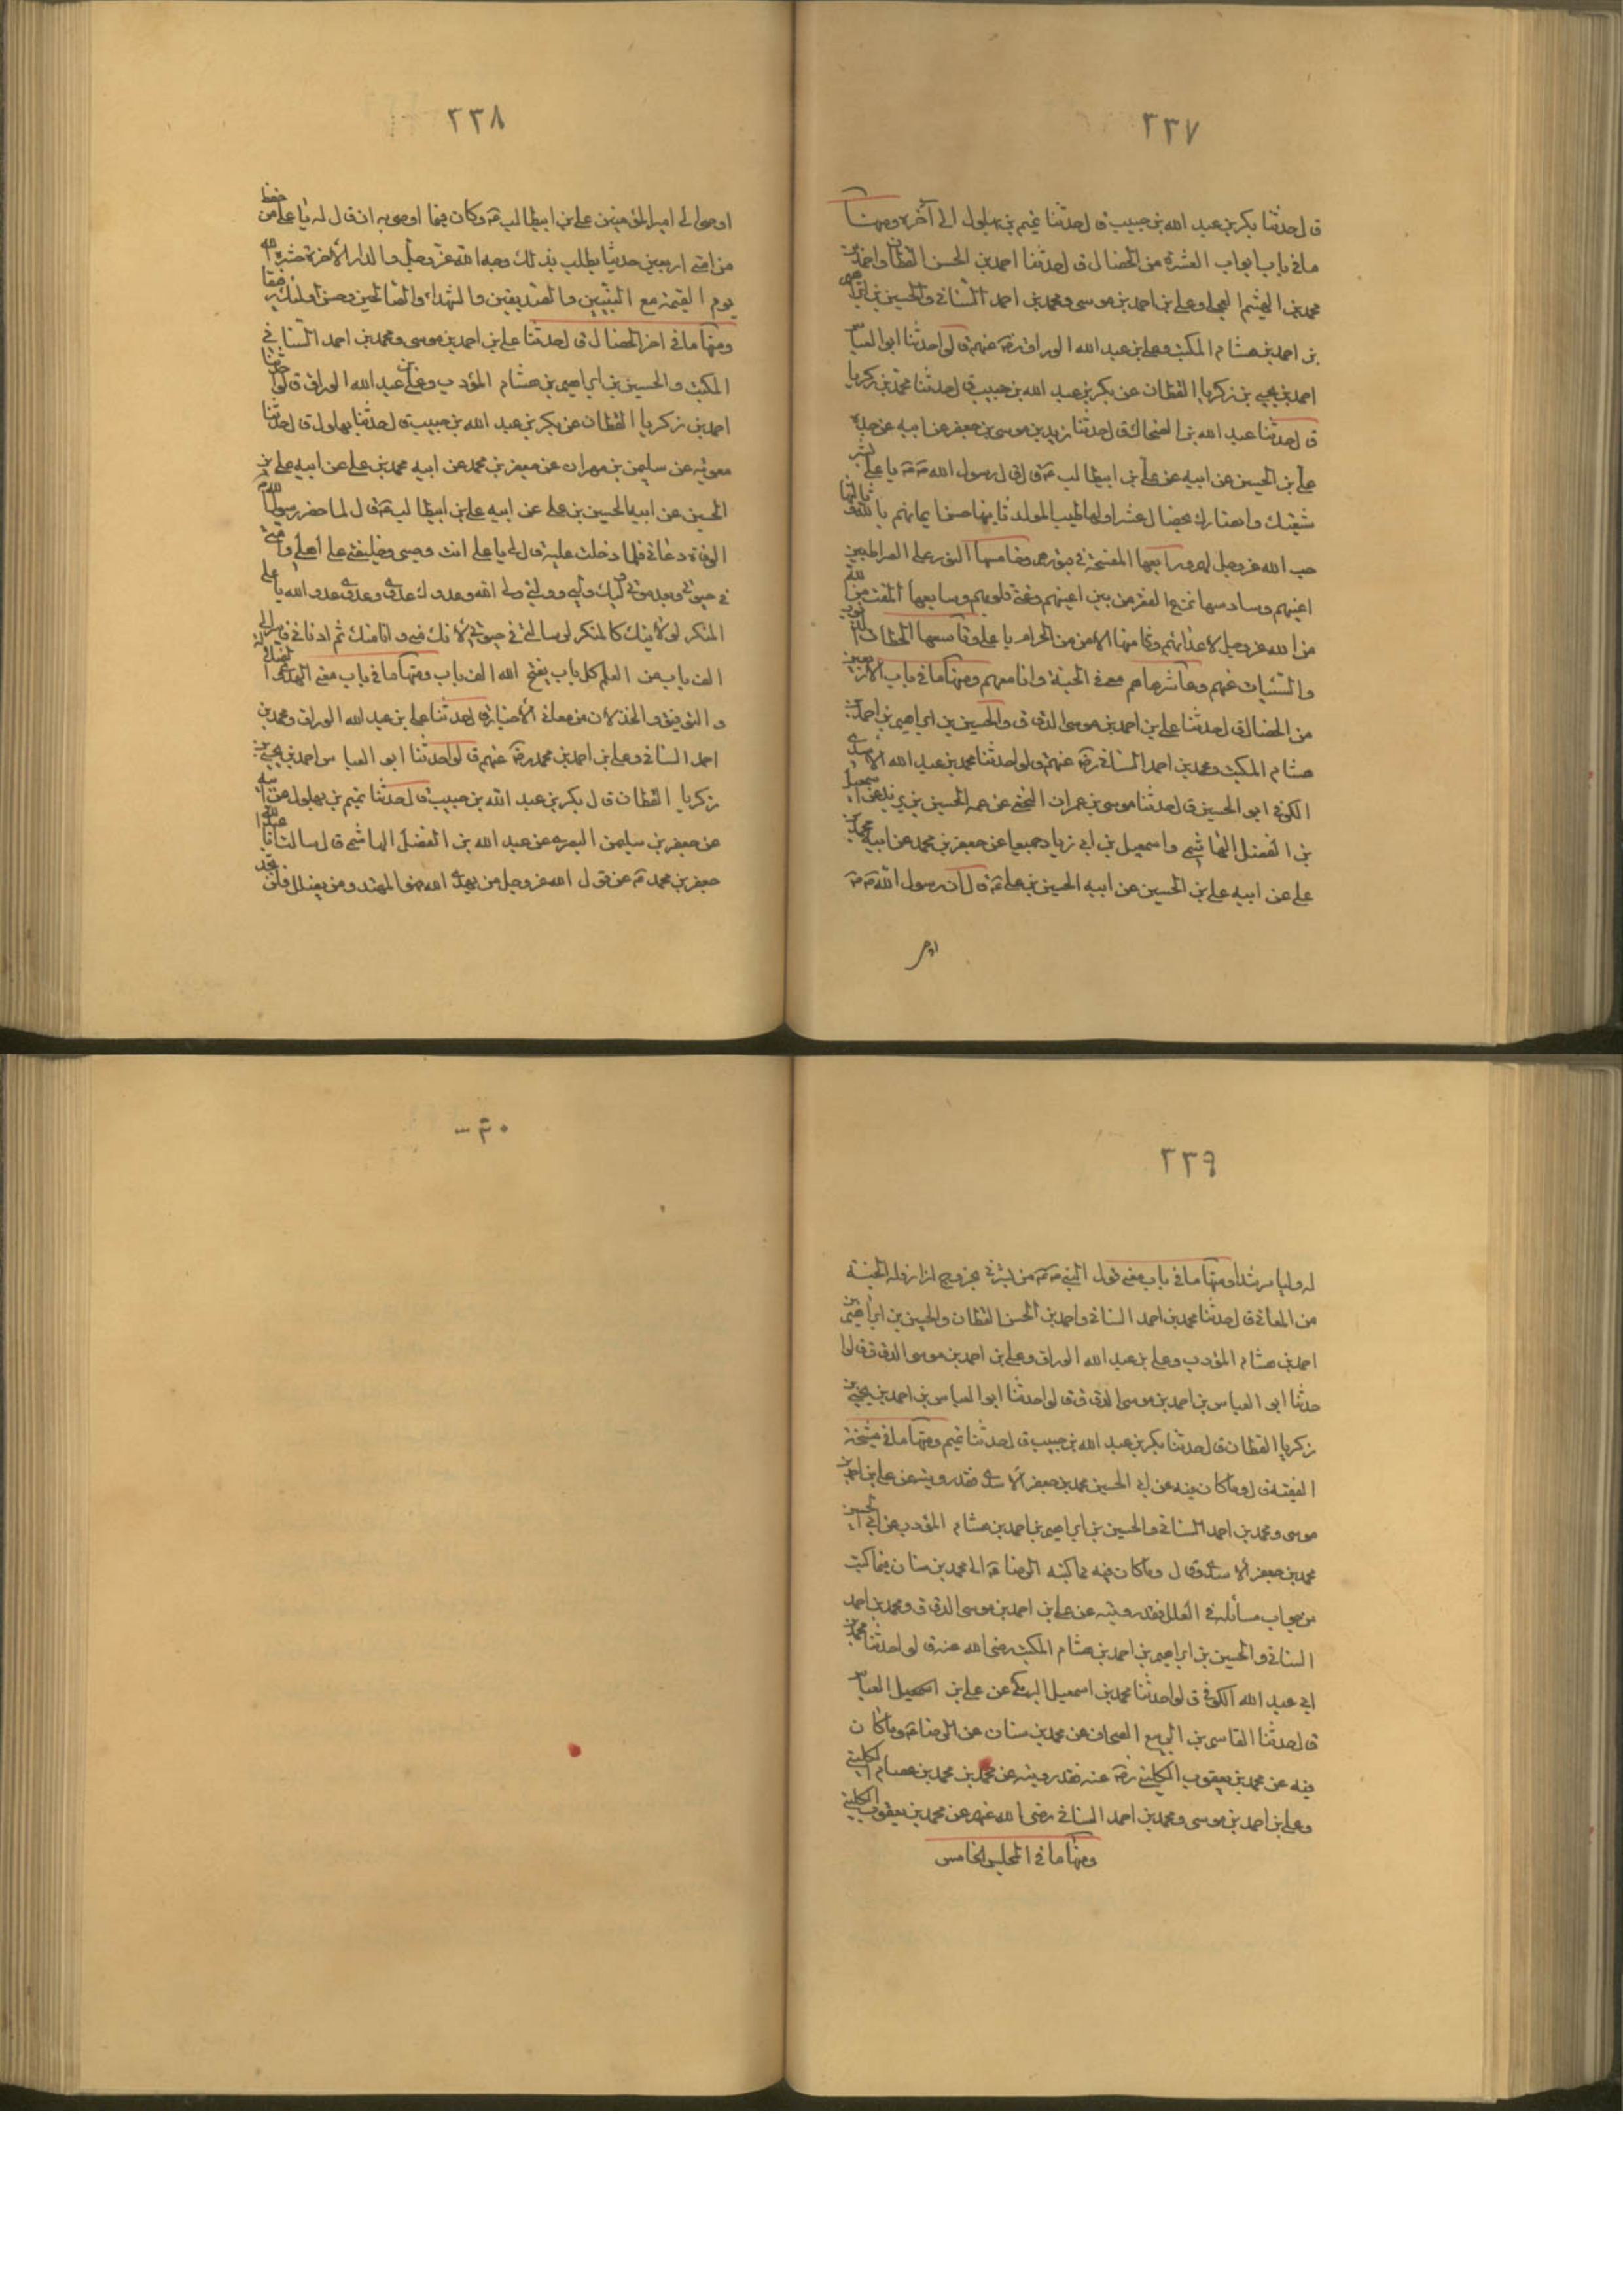 ٢٣٧
قال حدثنا بكر بن عبد الله بن حبيب قال حدثنا تميم بن بهلول الى آخره ومنها
ما في باب ابواب العشرة من الخصال قال حدثنا احمد بن الحسن القطان واحمد بن
محمد بن الهيثم العجلي وعلي بن احمد بن موسى ومحمد بن احمد السناني والحسين بن ابراهيم
بن احمد بن هشام المكتب وعلي بن عبد الله الوراق رضه عنهم قالوا حدثنا ابو العباس
احمد بن يحيى بن زكريا القطان عن بكر بن عبد الله بن حبيب قال حدثنا محمد بن زكريا
قال حدثنا عبد الله بن الضحاك قال حدثنا زيد بن موسى بن جعفر عن ابيه عن جده
علي بن الحسين عن ابيه عن علي بن ابيطالب قال قال رسول الله يا علي بشر
شيعتك وانصارك بخصال عشر اولها طيب المولد ثانيها حسن ايمانهم بالله ثالثها
حب الله عز وجل لهم ورابعها الفسحة في قبورهم وخامسها النور على الصراط بين
اعينهم وسادسها نزع الفقر من بين اعينهم وغنى قلوبهم وسابعها المقت من الله
من الله عز وجل لاعدائهم وثامنها الامن من الجذام يا علي وتاسعها انحطاط الذنوب
والسيئات عنهم وعاشرها هم معي في الجنة وانا معهم ومنها ما في باب الاربعين
من الخصال قال حدثنا علي بن احمد بن موسى الدقاق والحسين بن ابراهيم بن احمد بن
هشام المكتب ومحمد بن احمد السناني رضه عنهم قالوا حدثنا محمد بن عبد الله الاسدي
الكوفي ابو الحسين قال حدثنا موسى بن عمران النخعي عن عمه الحسين بن يزيد عن اسمعيل
بن الفضل الهاشمي واسمعيل بن ابي زياد جميعا عن جعفر بن محمد عن ابيه محمد بن
علي عن ابيه علي بن الحسين عن ابيه الحسين بن علي قال ان رسول الله
٢٣٨
اوصى الى امير المؤمنين علي بن ابيطالب وكان فيما اوصى به ان قال له يا علي من حفظ
من امتي اربعين حديثا يطلب بذلك وجه الله عز وجل والدار الاخرة حشره الله
يوم القيمة مع النبيين والصديقين والشهداء والصالحين وحسن اولئك رفيقا
ومنها ما في اخر الخصال قال حدثنا علي بن احمد بن موسى ومحمد بن احمد السناني
المكتب والحسين بن ابراهيم بن هشام المؤدب وعلي بن عبد الله الوراق قالوا حدثنا
احمد بن زكريا القطان عن بكر بن عبد الله بن حبيب قال حدثنا بهلول قال حدثنا
معوية عن سليمن بن مهران عن جعفر بن محمد عن ابيه محمد بن علي عن ابيه علي بن
الحسين عن ابيه الحسين بن علي عن ابيه علي بن ابيطالب قال لما حضر رسول الله
الوفاة دعاني فلما دخلت عليه قال لي يا علي انت وصيي وخليفتي على اهلي وامتي
في حيوتي وبعد موتي وليك وليي ووليي ولي الله وعدوك عدوي وعدوي عدو الله يا علي
المنكر لولايتك كالمنكر لرسالتي في حيوتي لانك مني وانا منك ثم ادناني فاسر الي
الف باب من العلم كل باب يفتح الف باب ومنها ما في باب معنى الهدى والضلال
والتوفيق والخذلان من معاني الاخبار قال حدثنا علي بن عبد الله الوراق ومحمد بن
احمد السناني وعلي بن احمد بن محمد رضه عنهم قالوا حدثنا ابو العباس احمد بن يحيى بن
زكريا القطان قال بكر بن عبد الله بن حبيب قال حدثنا تميم بن بهلول عن ابيه
عن جعفر بن سليمن البصري عن عبد الله بن الفضل الهاشمي قال سالت ابا عبد الله
جعفر بن محمد عن قول الله عز وجل من يهدي الله فهو المهتد ومن يضلل فلن تجد
٢٣٩
له وليا مرشدا ومنها ما في باب معنى قول النبي من بشرني بخروج اذار فله الجنة
من المعاني قال حدثنا محمد بن احمد السناني واحمد بن الحسن القطان والحسين بن ابراهيم بن
احمد بن هشام المؤدب وعلي بن عبد الله الوراق وعلي بن احمد بن موسى الدقاق قالوا
حدثنا ابو العباس بن احمد بن موسى الدقاق قالوا حدثنا ابو العباس بن احمد بن يحيى بن
زكريا القطان قال حدثنا بكر بن عبد الله بن حبيب قال حدثنا تميم ومنها ما في مشيخة
الفقيه قال وما كان فيه عن ابي الحسين محمد بن جعفر الاسدي فقد رويته عن علي بن احمد بن
موسى ومحمد بن احمد السناني والحسين بن ابراهيم بن احمد بن هشام المؤدب عن ابي الحسين
محمد بن جعفر الاسدي وقال وما كان فيه مما كتبه الرضا الى محمد بن سنان فيما كتب
من جواب مسائله في العلل فقد رويته عن علي بن احمد بن موسى الدقاق ومحمد بن احمد
السناني والحسين بن ابراهيم بن احمد بن هشام المكتب رضى الله عنه قالوا حدثنا محمد بن
ابي عبد الله الكوفي قالوا حدثنا محمد بن اسمعيل البرمكي عن علي بن العباس
قال حدثنا القاسم بن الربيع الصحاف عن محمد بن سنان عن الرضا وما كان
فيه عن محمد بن يعقوب الكليني رضه عنه فقد رويته عن محمد بن محمد بن عصام الكليني
وعلي بن احمد بن موسى ومحمد بن احمد السناني رضى الله عنهم عن محمد بن يعقوب الكليني
ومنها ما في المجلس الخامس